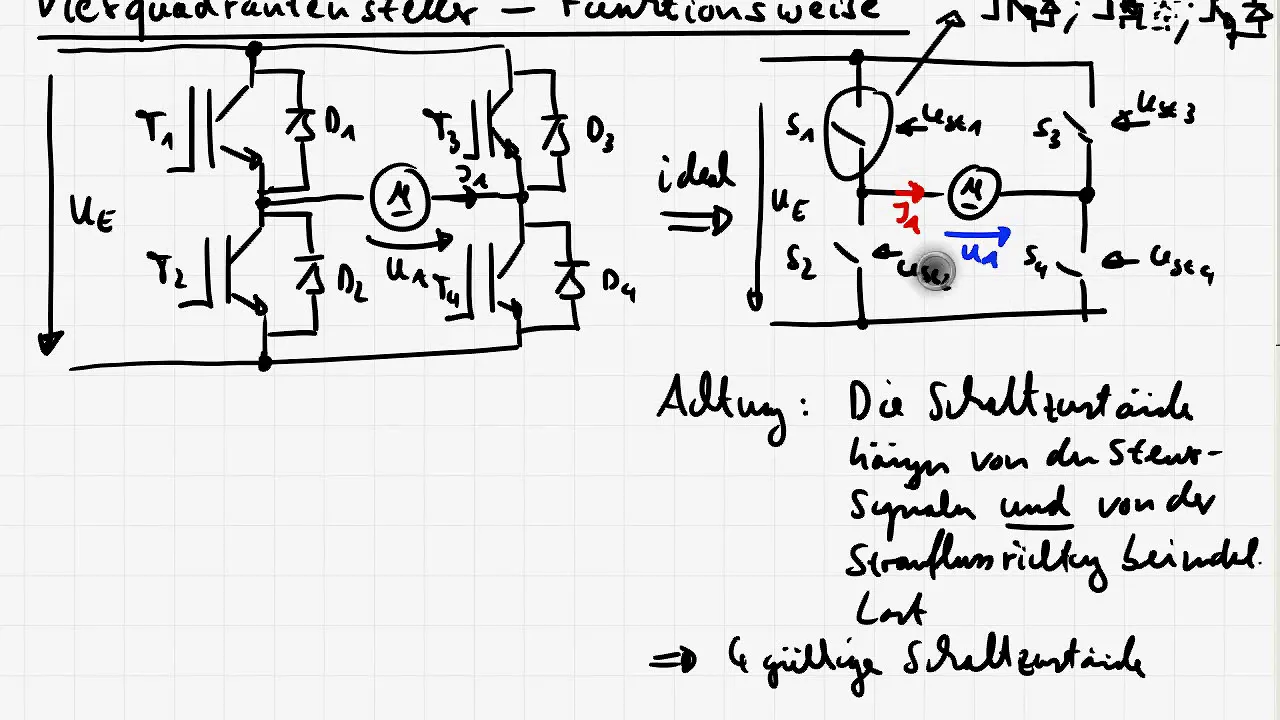 Vierquadrantensteller – Funktionsweise
T1 D1 T3 D3
UE
M I1
T2 D2 U1 T4 D4
ideal
S1 Ust1 S3 Ust3
UE I1 M
S2 Ust2 U1 S4 Ust4
Achtung: Die Schaltzustände
hängen von den Steuer-
Signalen und von der
Stromflussrichtung bei indukt.
Last
⇒ 4 gültige Schaltzustände